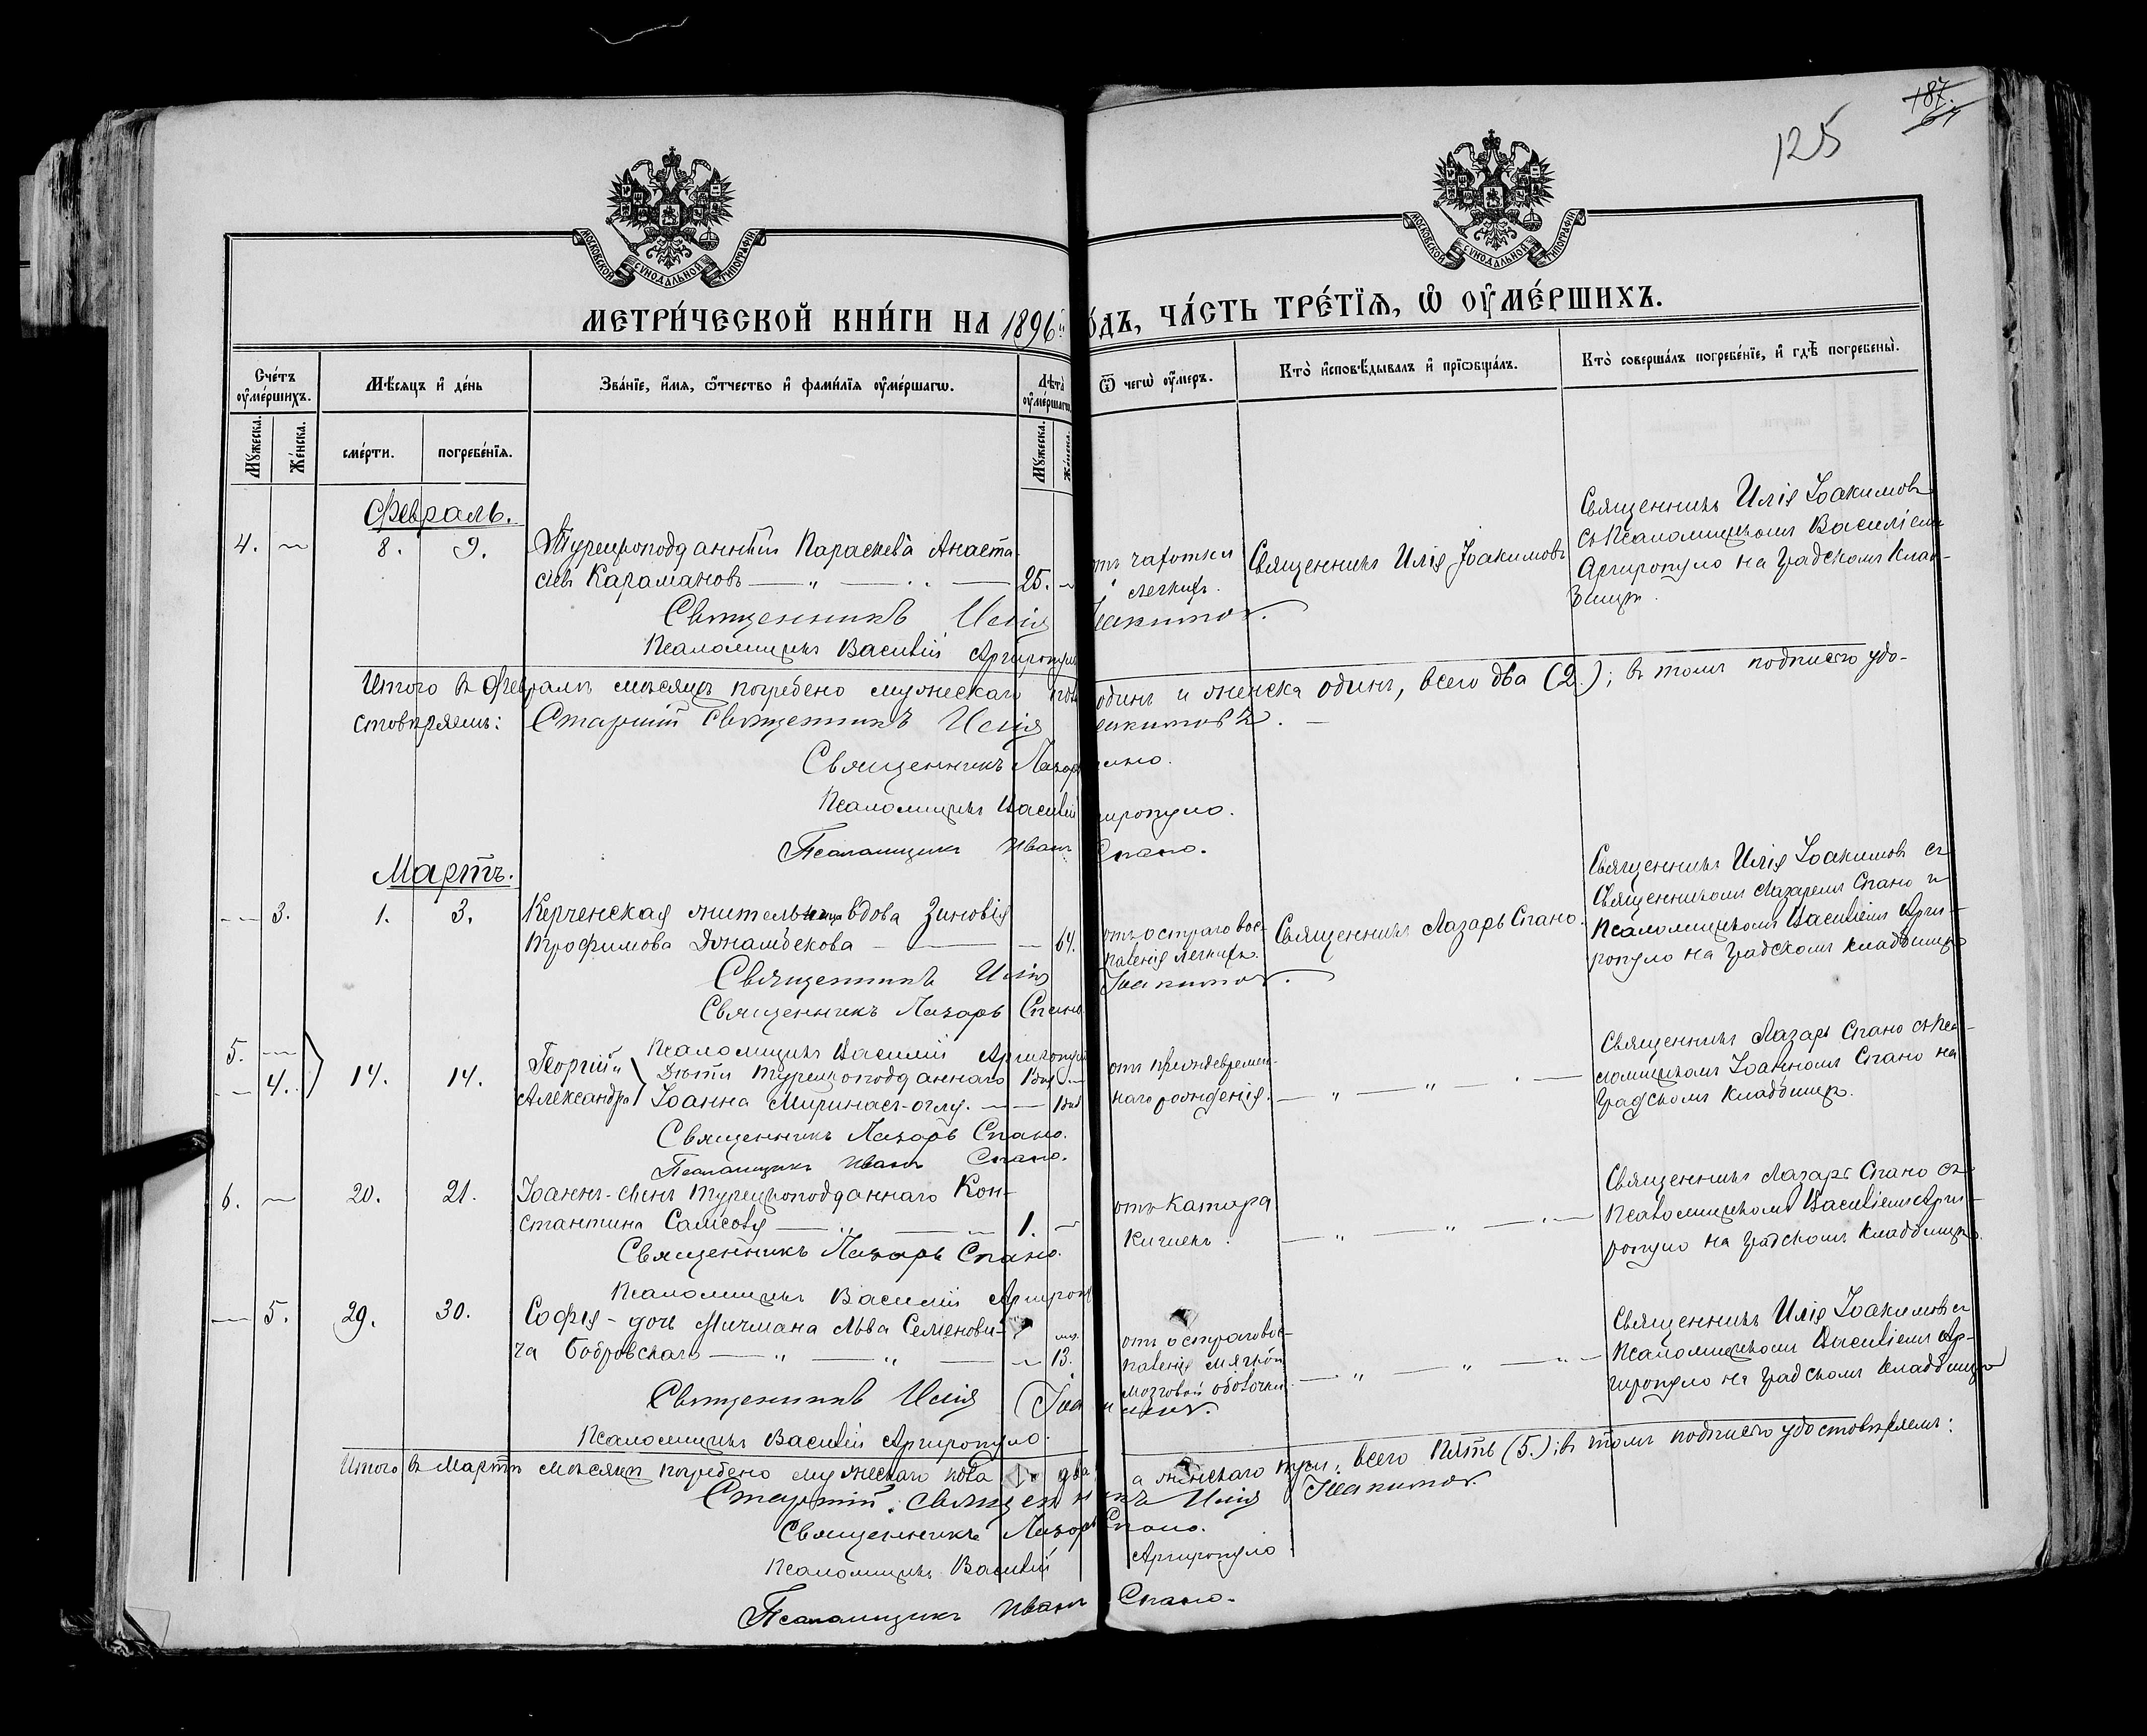 187.
64
125
МОСКОВСКОЙ СѴНОДАЛЬНОЙ ТИПОГРАФІИ
МОСКОВСКОЙ СѴНОДАЛЬНОЙ ТИПОГРАФІИ
МЕТРИ́ЧЕСКОЙ КНИ́ГИ НА 1896й
О́ДЪ, ЧА́СТЬ ТРЕ́ТЇѦ, Ѡ҆ ОУ҆МЕ́РШИХЪ.
Сче́тъ оу҆ме́ршихъ.
Мѣ́сяцъ и҆ де́нь
Зва́нїе, и҆́мя, ѻ҆́тчество и҆ фами́лїя оу҆ме́ршагѡ.
Лѣ́та оу҆ме́ршагѡ.
Ѿ чегѡ̀ оу҆́меръ.
Кто̀ и҆сповѣ́дывалъ и҆ прїѡбща́лъ.
Кто̀ соверша́лъ погребе́нїе, и҆ гдѣ̀ погребены̀.
Мꙋ́жеска.
Же́нска.
сме́рти.
погребе́нїя.
Мꙋ́жеска.
Же́нска.
Февраль.
4. — 8. 9. Турецкоподданный Параскева Анаста-
сiевъ Карамановъ — 25. —
отъ чахотки
легкихъ.
Священникъ Илія Іоакимовъ
Священникъ Илія Іоакимовъ
съ Псаломщикомъ Василіемъ
Аргиропуло на Градскомъ Клад-
бищѣ.
Священникъ Илія Іоакимов.
Псаломщикъ Василій Аргиропуло
Итого въ Февралѣ мѣсяцѣ погребено мужескаго пола одинъ и женска одинъ, всего два (2.); въ томъ подписью удо-
стовѣряемъ: Старшій священникъ Илія Іоакимовъ. —
Священникъ Лазарь Спано.
Псаломщикъ Василій Аргиропуло.
Псаломщикъ Иванъ Спано.
Мартъ.
— 3. 1. 3. Керченская жительница вдова Зиновія
Трофимова Джамбекова — — 64.
отъ остраго вос-
паленія легкихъ.
Священникъ Лазарь Спано.
Священникъ Илія Іоакимовъ съ
Священникомъ Лазаремъ Спано и
Псаломщикомъ Василіемъ Арги-
ропуло на Градскомъ кладбищѣ
Священникъ Илія Іоакимов.
Священникъ Лазарь Спано
Псаломщикъ Василій Аргиропуло
5. —
— 4. 14. 14. Георгій и
Александра
Дѣти турецкоподданнаго
Іоанна
отъ преждевремен-
наго рожденія.
— „ —
Священникъ Лазарь Спано съ Пса-
ломщикомъ Іоанномъ Спано на
Градскомъ Кладбищѣ.
Священникъ Лазарь Спано.
Псаломщикъ Иванъ Спано.
6. — 20. 21. Іоаннъ-сынъ турецкоподданнаго Кон-
стантина — „ — 1. —
отъ катара
кишекъ.
— „ —
Священникъ Лазарь Спано съ
Псаломщикомъ Василіемъ Арги-
ропуло на Градскомъ Кладбищѣ.
Священникъ Лазарь Спано.
Псаломщикъ Василій Аргироп
— 5. 29. 30. Софія-дочь Мичмана Льва Семенови-
ча Бобровскаго — „ — „ — 13.
отъ остраго вос-
паленія мягкой
мозговой оболочки.
— „ —
Священникъ Илія Іоакимовъ съ
Псаломщикомъ Василіемъ Ар-
гиропуло на Градскомъ Кладбищѣ
Священникъ Илія Іоакимов.
Псаломщикъ Василій Аргиропуло.
Итого въ Мартѣ мѣсяцѣ погребено мужескаго пола два, а женскаго три, всего пять (5.); въ томъ подписью удостовѣряемъ:
Старшій священникъ Илія Іоакимов.
Священникъ Лазарь Спано.
Псаломщикъ Василій Аргиропуло
Псаломщикъ Иванъ Спано.